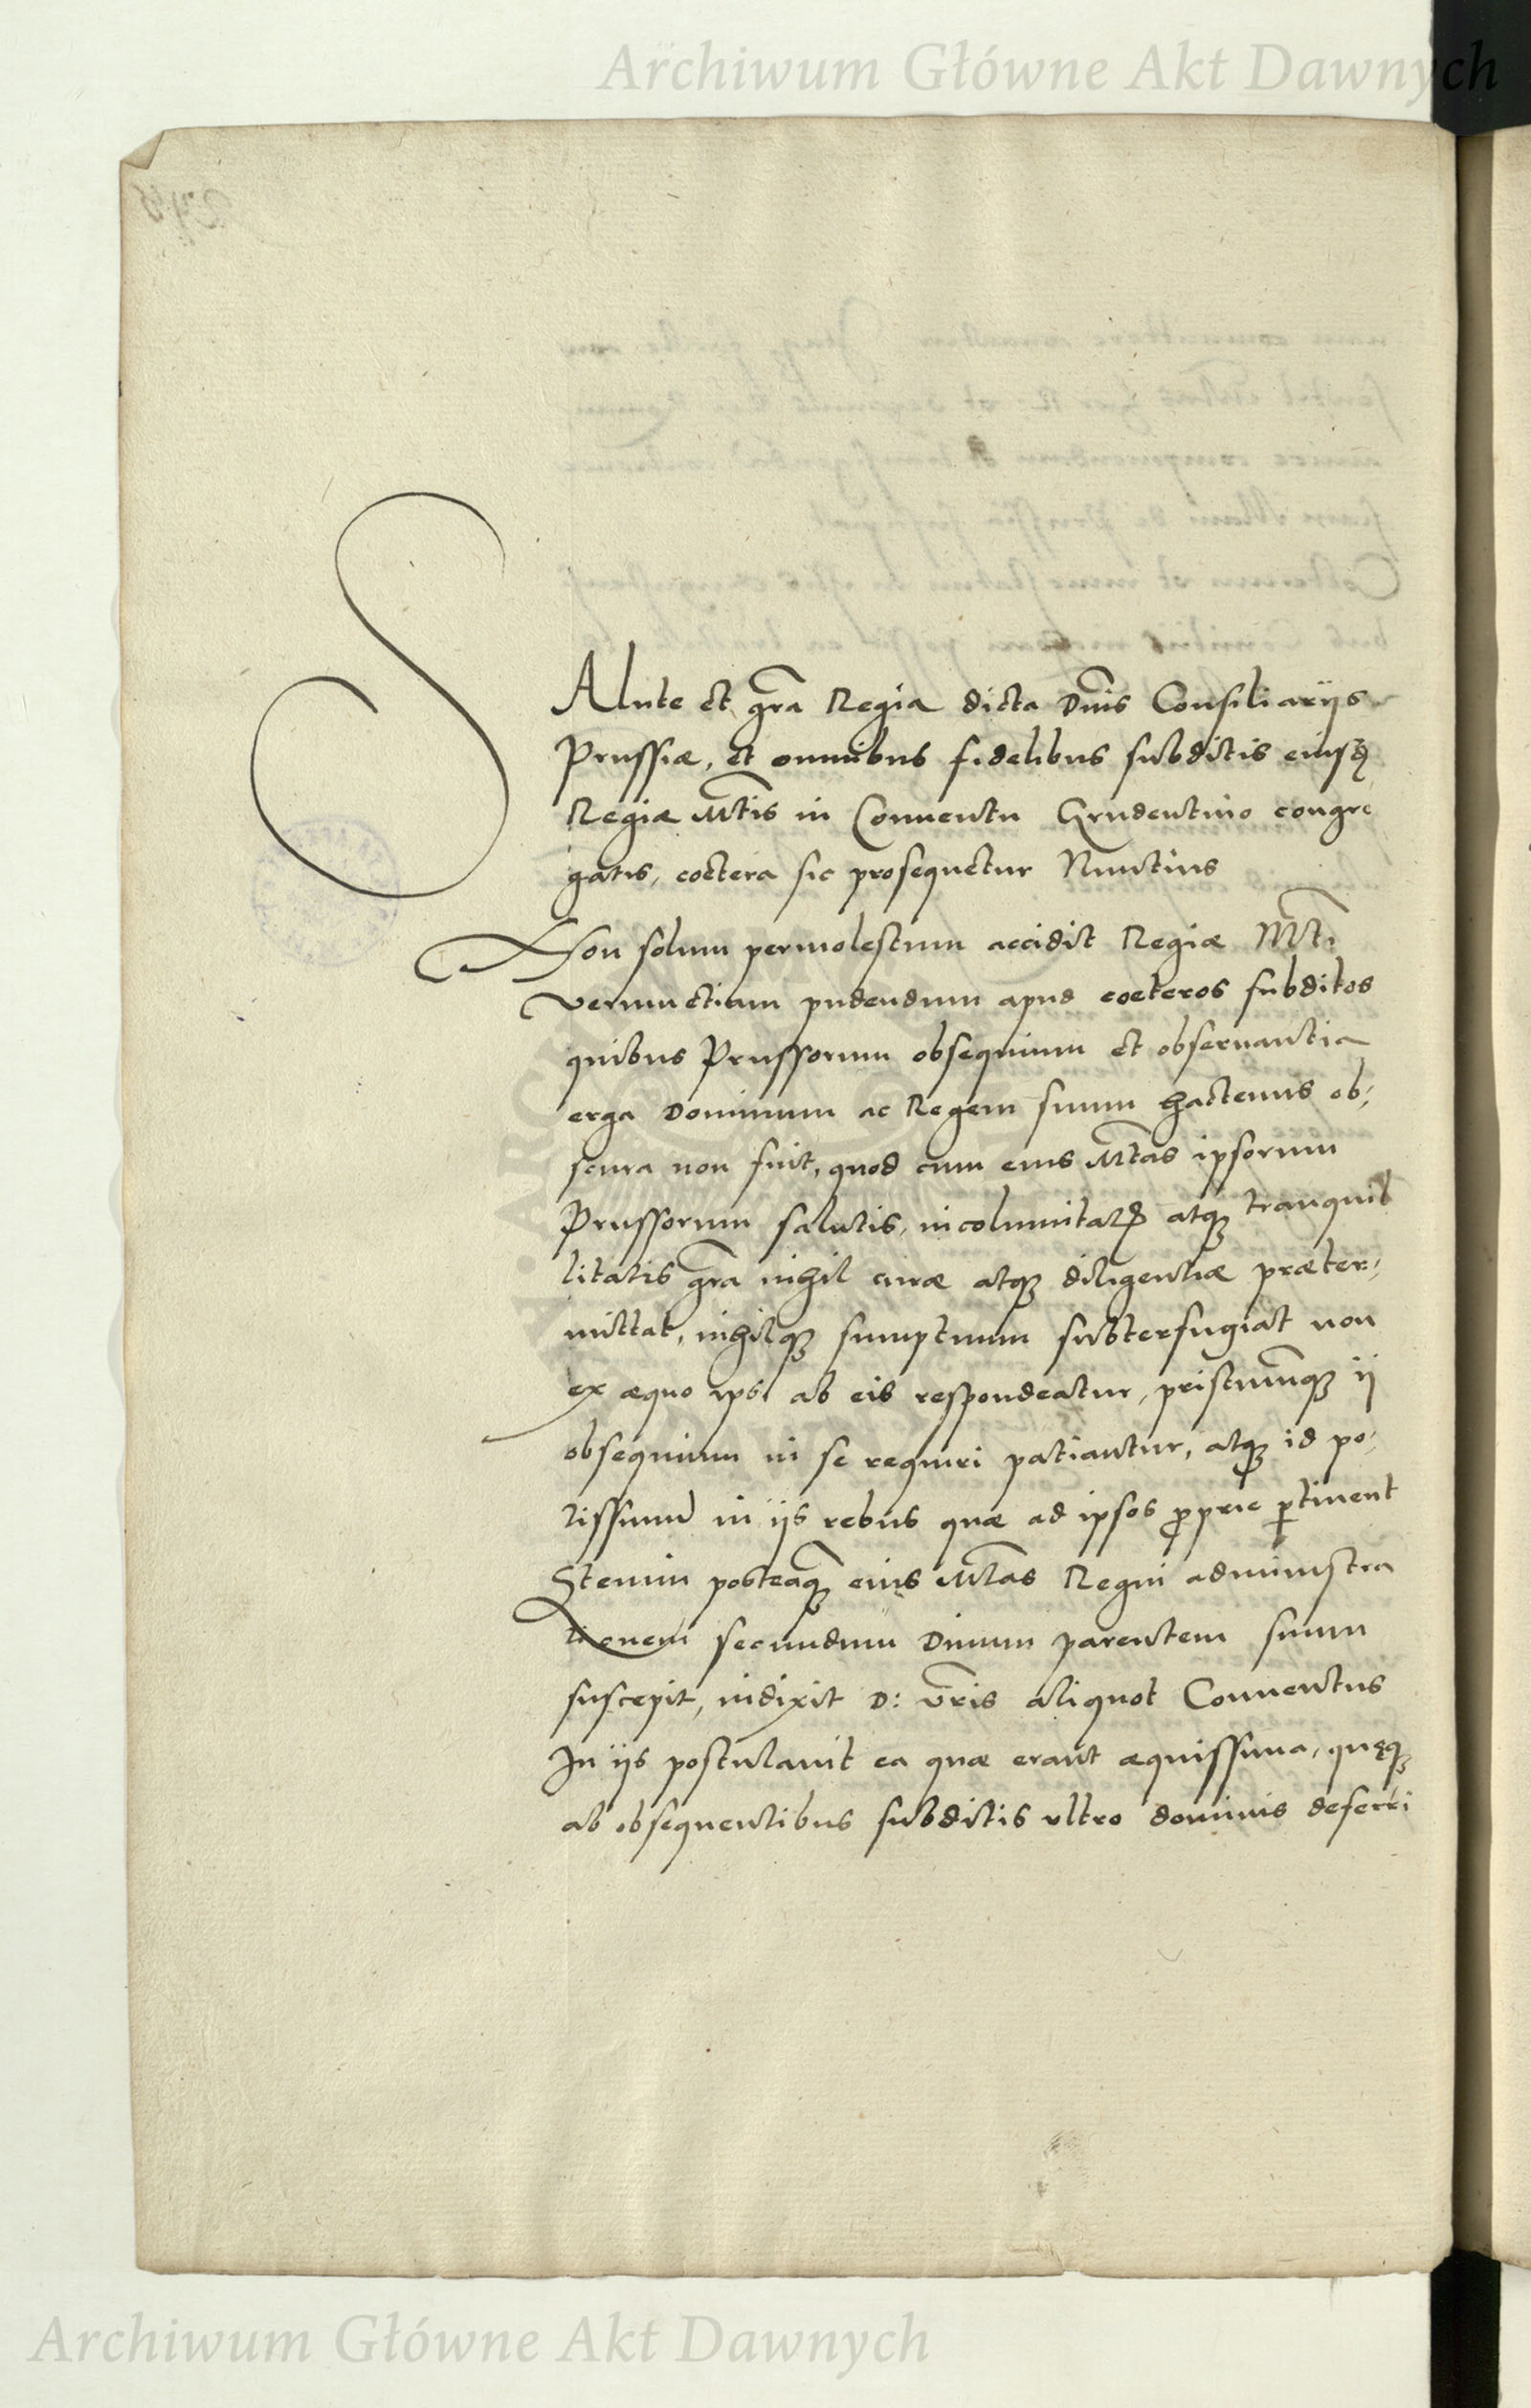 Archiwum Główne Akt Dawnych
SAlute et gra Regia dicta Dnis Consiliarijs
Prussiæ, et omnibus fidelibus subditis eiusq
Regiæ Mtis in Conuentu Grudentino congre
gatis, coetera sic prosequetur Nuntius
Non solum permolestum accidit Regiæ Mti
verum etiam pudendum apud coeteros subditos
quibus Prussorum obsequium et obseruantia
erga Dominum ac Regem suum hactenus ob,
scura non fuit, quod cum eius Mtas ipsorum
Prussorum salutis, incolumitatis atq tranquil
litatis gra nihil curæ atq diligentiæ præter,
mittat, nihilq sumptuum subterfugiat non
ex æquo ipsi ab eis respondeatur, pristinumq ij
obsequium in se requiri patiantur, atq id po,
tissimum in ijs rebus quæ ad ipsos proprie pertinent
Etenim posteaq eius Mtas Regni administra
tionem secundum Diuum parentem suum
suscepit, indixit D: Vris aliquot Conuentus
In ijs postulauit ea quæ erant æquissima, quęq
ab obsequentibus subditis vltro dominis deferri
Archiwum Główne Akt Dawnych